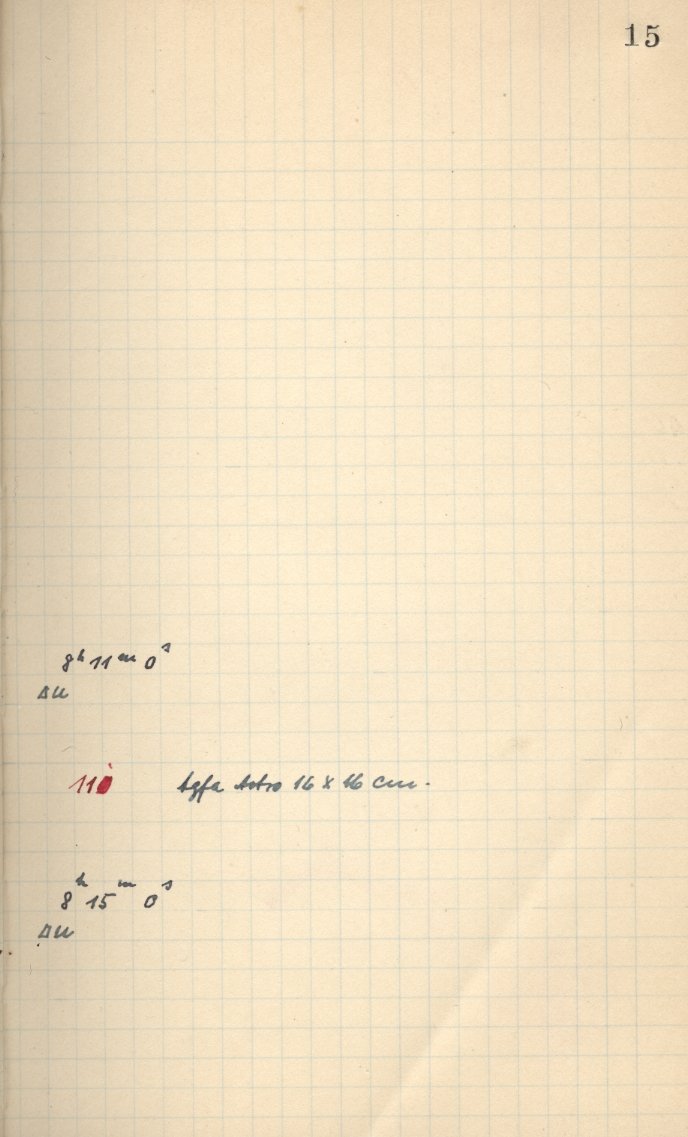 15
8h 11m 0s
Δu
110
Agfa Astro 16 x 16 cm.
8h 15m 0s
Δu